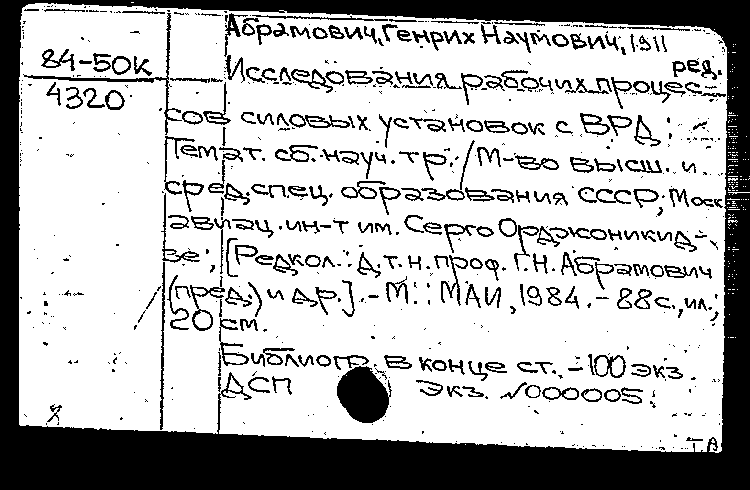 Абрамович, Генрих Наумович, 1911
ред.
84-50К
4320
Исследования рабочих процес-
сов силовых установок с ВРД:
Темат. сб. науч. тр. / М-во высш. и
сред. спец. образования СССР, Моск
авиац. ин-т им. Серго Орджоникид-
зе; [Редкол.: д.т.н. проф. Г.Н. Абрамович
(пред.) и др.]. - М.: МАИ, 1984. - 88 с., ил.;
20 см.
Библиогр. в конце ст. - 100 экз.
ДСП экз. №000005.